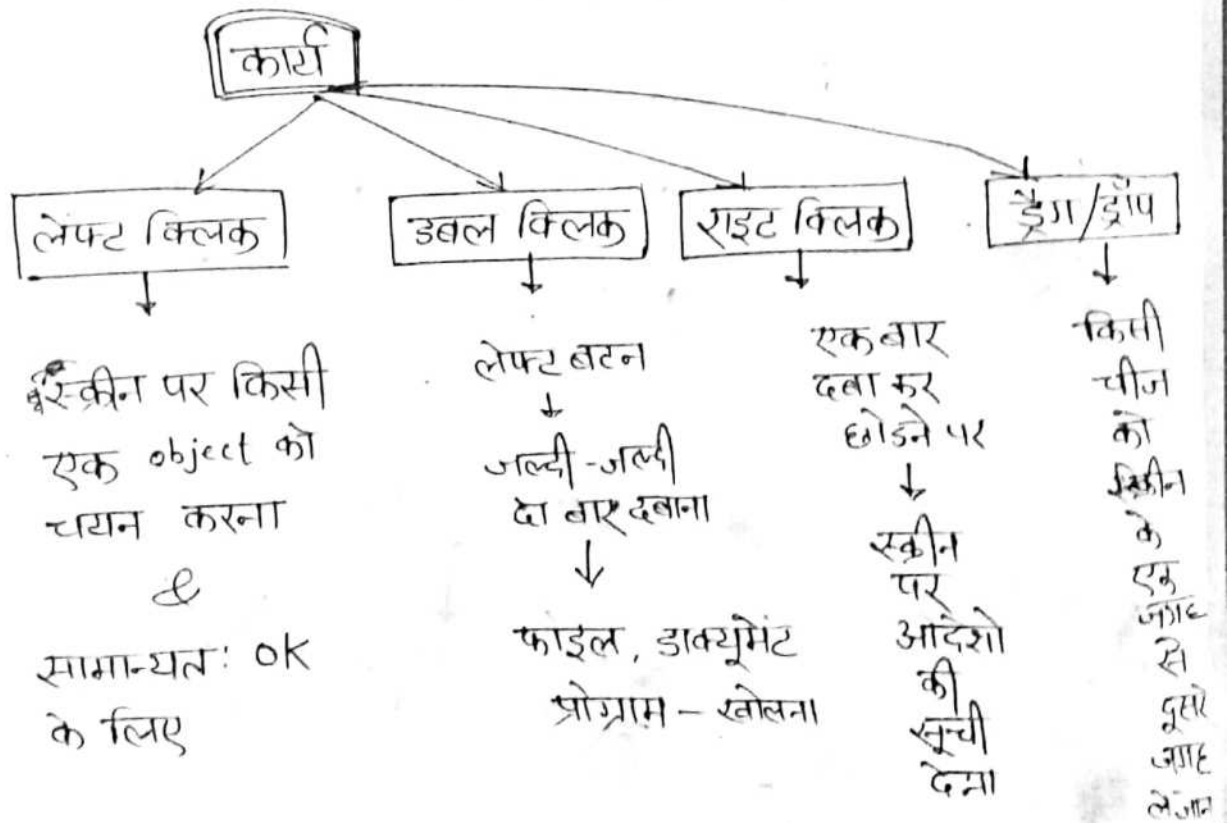 कार्य
लेफ्ट क्लिक
स्क्रीन पर किसी
एक object को
चयन करना
&
सामान्यत: OK
के लिए
डबल क्लिक
लेफ्ट बटन
जल्दी-जल्दी
दो बार दबाना
फाइल, डाक्यूमेंट
प्रोग्राम - खोलना
राइट क्लिक
एक बार
दबा कर
छोडने पर
स्क्रीन
पर
आदेशो
की
सूची
देना
ड्रैग/ड्रॉप
किसी
चीज
को
स्क्रीन
के
एक
जगह
से
दूसरे
जगह
लेजान